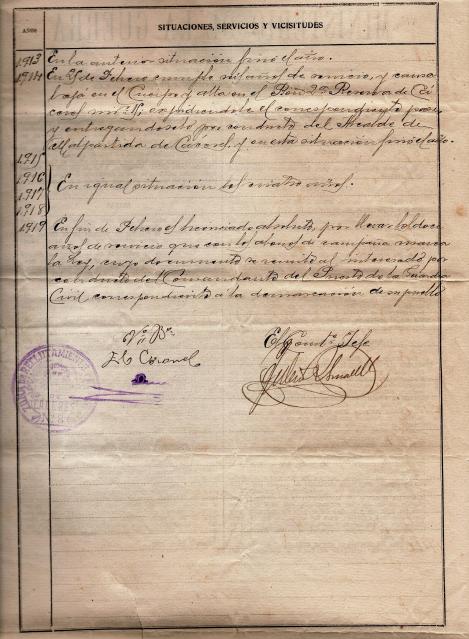 AÑOS
SITUACIONES, SERVICIOS Y VICISITUDES
1913 En la anterior situación finó el año.
1914 En de Febrero cumple años de servicio, y causa
baja en el Cuerpo y alta en el Reserva de Cá
ceres expidiéndosele el correspondiente pase
y entregándoselo por conducto del Alcalde de
Malpartida de Cáceres, y en esta situación finó el año.
1915
1916
1917 En igual situación los cuatro años.
1918
1919 En fin de Febrero licenciado absoluto, por llevar los doce
años de servicio que con los abonos de campaña marca
la Ley, cuyo documento se remitió al interesado por
conducto del Comandante del Puesto de la Guardia
Civil correspondiente a la demarcación de su pueblo
Vº Bº
El Coronel
El Jefe